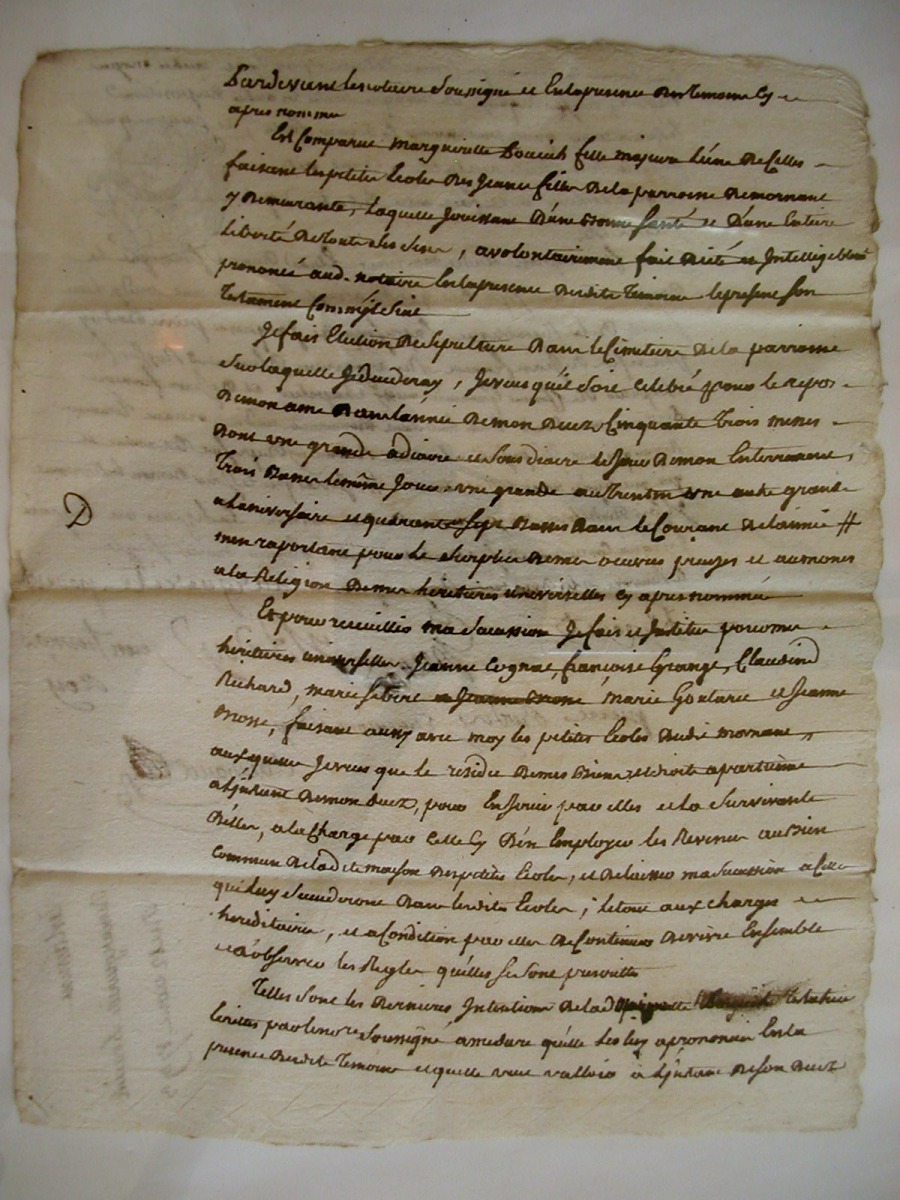 Pardevant le notaire soussigné et En la presence des temoins Cy
apres nommés
Est Comparue marguerite fille majeure L'une de Celles
faisant les petites Ecoles des Jeunes filles de la parroisse de mornant
y demeurante, laquelle Jouissant d'une bonne santé et d'une Entiere
liberté de toute ses sens, a volontairement fait dicté et Intelligiblemt
prononcé aud. notaire En la presence desdits temoins le present son
testament Comme s'ensuit
Je fais Election de sepulture dans le Cimetiere de la parroisse
sur laquelle Je decederay, Je veus qu'il soit celebré pour le repos
de mon ame dans l'année de mon deces Cinquante trois messes
dont une grande a diacre et sous diacre le Jour de mon Enterrement,
trois basses le même Jour, une grande au trentin une autre grande
a l'aniversaire et quarante sept basses dans le Courant de l'année #
m'en raportant pour le surplus de mes oeuvres pieuses et aumones
a la Religion de mes heritieres universelles cy apres nommées
Et pour recueillir ma sucession Je fais et Institue pour mes
heritieres universelles Jeanne Cognat, francoise Grange, Claudine
Richard, marie marie Goutaret et Jeanne
faisant aussy avec moy les petites Ecoles dudit mornant,
auxquelles Je veus que le residu de mes biens et droits apartienne
a l'jnstant de mon deces, pour En Jouir par elles et la survivante
d'elles, a la Charge par Celle Cy d'en Employer les Revenus au bien
Commun de lad.te maison des petites Ecoles, et de laisser ma sucession a Celles
qui luy sucederont dans lesdites Ecoles; le tout aux charges
hereditaires, et a Condition par elles de Continuer de vivre Ensemble
et d'observer les Regles qu'elles se sont prescrittes
Telles sont les dernieres Intentions de lad. testatrice
Ecrites par le no.re soussigné a mesure qu'elle les luy a prononcé En la
presence desdits temoins et qu'elle veut valloir a l'jnstant de son deces
D